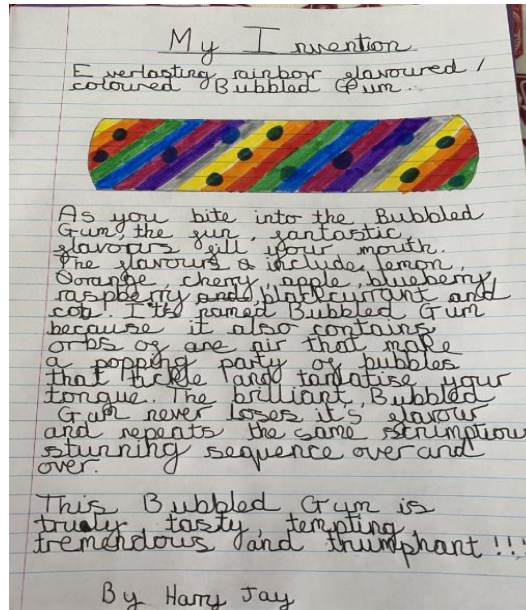 My Invention
Everlasting rainbow flavoured /
coloured Bubbled Gum.
As you bite into the Bubbled
Gum, the fun, fantastic,
flavours fill your mouth.
The flavours include lemon,
orange, cherry, apple, blueberry,
raspberry and blackcurrant and
cola. It's named Bubbled Gum
because it also contains
orbs of air that make
a popping party of bubbles
that tickle and tantalise your
tongue. The brilliant Bubbled
Gum never loses it's flavour
and repeats the same scrumptious
stunning sequence over and
over.
This Bubbled Gum is
truly tasty, tempting,
tremendous and thumphant!!!
By Harry Jay